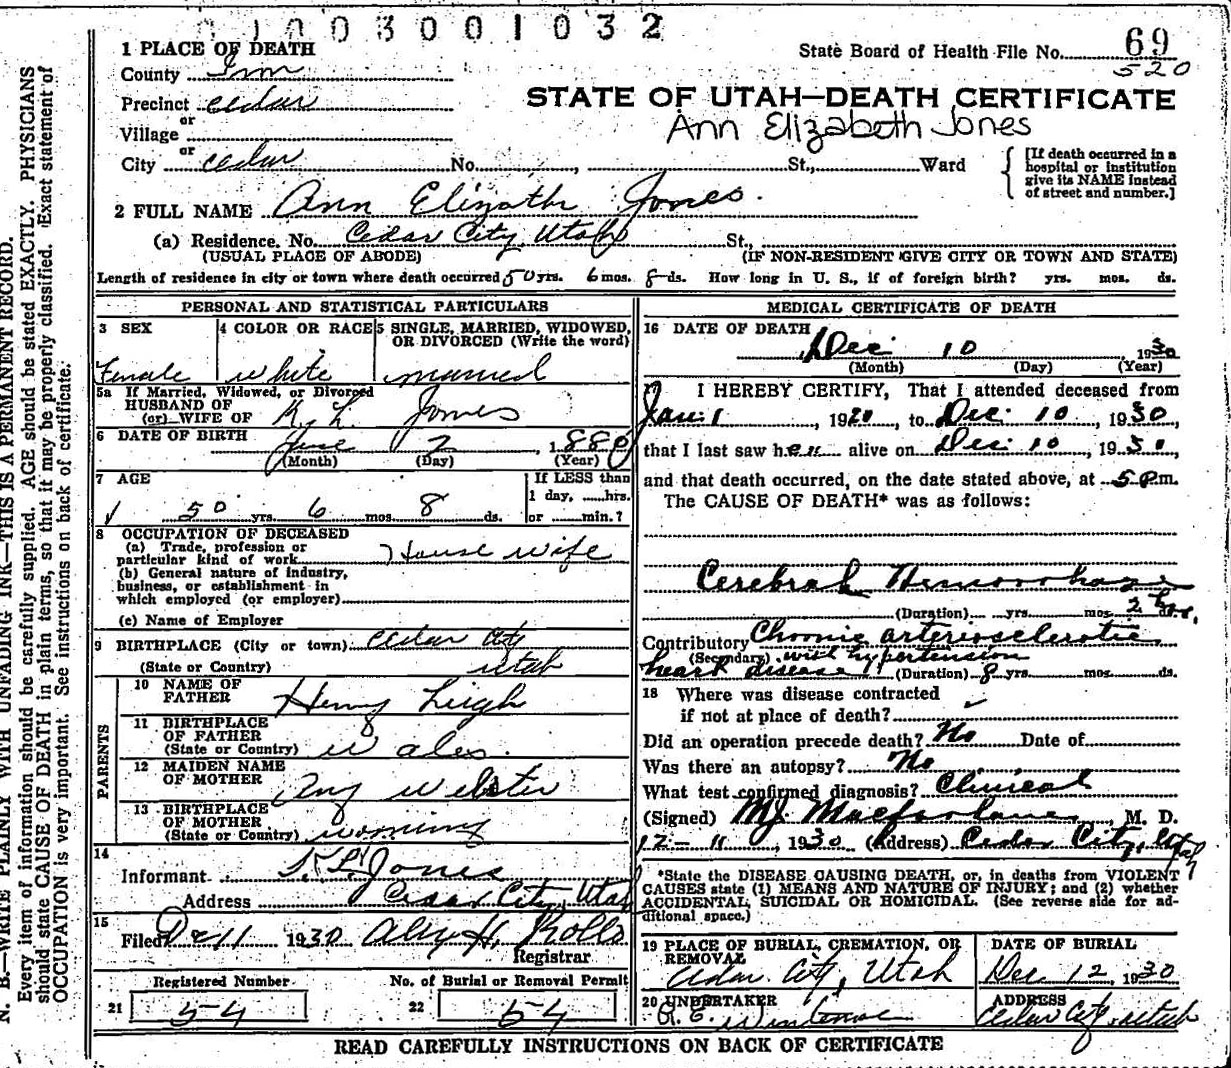 01003001032
State Board of Health File No. 69
520
1 PLACE OF DEATH
County Iron
Precinct Cedar
or
Village
or
City Cedar No. , St., Ward
STATE OF UTAH—DEATH CERTIFICATE
Ann Elizabeth Jones
[If death occurred in a hospital or institution give its NAME instead of street and number.]
2 FULL NAME Ann Elizath Jones.
(a) Residence. No. Cedar City, Utah St.,
(USUAL PLACE OF ABODE) (IF NON-RESIDENT GIVE CITY OR TOWN AND STATE)
Length of residence in city or town where death occurred 50 yrs. 6 mos. 8 ds. How long in U. S., if of foreign birth? yrs. mos. ds.
PERSONAL AND STATISTICAL PARTICULARS
3 SEX
Female
4 COLOR OR RACE
white
5 SINGLE, MARRIED, WIDOWED, OR DIVORCED (Write the word)
married
5a If Married, Widowed, or Divorced
HUSBAND OF
(or) WIFE OF Jones
6 DATE OF BIRTH June 2, 1880
(Month) (Day) (Year)
7 AGE
50 yrs. 6 mos. 8 ds.
If LESS than
1 day, hrs.
or min.?
8 OCCUPATION OF DECEASED
(a) Trade, profession or
particular kind of work House wife
(b) General nature of industry,
business, or establishment in
which employed (or employer)
(c) Name of Employer
9 BIRTHPLACE (City or town) Cedar City
(State or Country) Utah
PARENTS
10 NAME OF
FATHER Henry Leigh
11 BIRTHPLACE
OF FATHER
(State or Country) Wales.
12 MAIDEN NAME
OF MOTHER Amy Webster
13 BIRTHPLACE
OF MOTHER
(State or Country) Wyoming
14
Informant Jones
Address Cedar City, Utah
15
Filed Dec 11 1930 H. Rollo
Registrar
Registered Number
21 54
No. of Burial or Removal Permit
22 54
MEDICAL CERTIFICATE OF DEATH
16 DATE OF DEATH
Dec 10, 1930
(Month) (Day) (Year)
17 I HEREBY CERTIFY, That I attended deceased from
Jan. 1, 1920, to Dec. 10, 1930,
that I last saw her alive on Dec 10, 1930,
and that death occurred, on the date stated above, at 5 P.m.
The CAUSE OF DEATH* was as follows:
Cerebral Hemorrhage
(Duration) yrs. mos. 2 hrs. ds.
Contributory Chronic arteriosclerotic
(Secondary) with hypertension
heart disease (Duration) 8 yrs. mos. ds.
18 Where was disease contracted
if not at place of death?
Did an operation precede death? No Date of
Was there an autopsy? No
What test confirmed diagnosis? Clinical
(Signed) M.J. Macfarlane, M. D.
12-11, 1930 (Address) Cedar City, Utah
*State the DISEASE CAUSING DEATH, or, in deaths from VIOLENT
CAUSES state (1) MEANS AND NATURE OF INJURY; and (2) whether
ACCIDENTAL, SUICIDAL OR HOMICIDAL. (See reverse side for ad-
ditional space.)
19 PLACE OF BURIAL, CREMATION, OR
REMOVAL
Cedar City, Utah
DATE OF BURIAL
Dec 12, 1930
20 UNDERTAKER
ADDRESS
Cedar City, Utah
READ CAREFULLY INSTRUCTIONS ON BACK OF CERTIFICATE
N. B.—WRITE PLAINLY WITH UNFADING INK—THIS IS A PERMANENT RECORD.
Every item of information should be carefully supplied. AGE should be stated EXACTLY. PHYSICIANS
should state CAUSE OF DEATH in plain terms, so that it may be properly classified. Exact statement of
OCCUPATION is very important. See instructions on back of certificate.